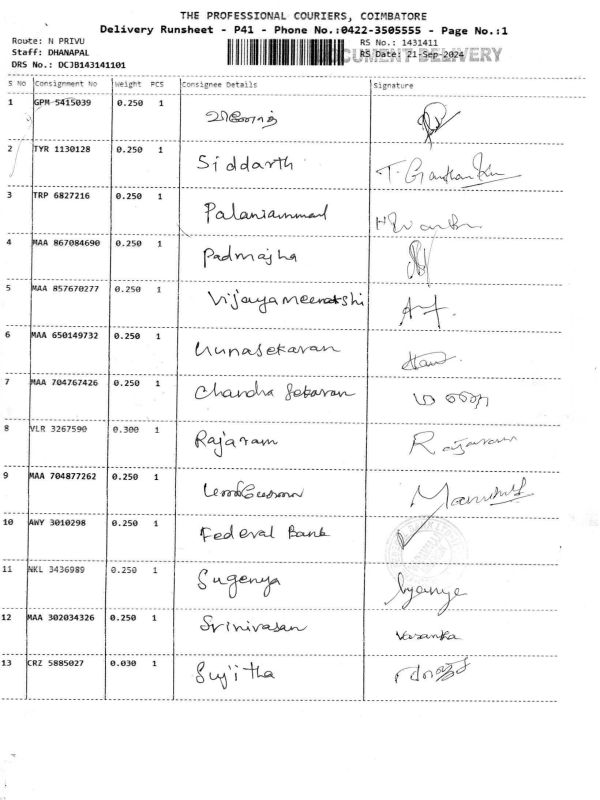 THE PROFESSIONAL COURIERS, COIMBATORE
Delivery Runsheet - P41 - Phone No.:0422-3505555 - Page No.:1
Route: N PRIVU RS No.: 1431411
Staff: DHANAPAL DOCUMENT DELIVERY RS Date: 21-Sep-2024
DRS No.: DCJB143141101
S No Consignment No Weight PCS Consignee Details Signature
1 GPM 5415039 0.250 1
2 TYR 1130128 0.250 1 Siddarth
3 TRP 6827216 0.250 1 Palaniammal
4 MAA 867084690 0.250 1 Padmajha
5 MAA 857670277 0.250 1 Vijayameenatshi
6 MAA 650149732 0.250 1 Gunasekaran
7 MAA 704767426 0.250 1 Chandra Sekaran
8 VLR 3267590 0.300 1 Rajaram Rajaram
9 MAA 704877262 0.250 1
10 AWY 3010298 0.250 1 Federal Bank
11 NKL 3436989 0.250 1 Sugenya
12 MAA 302034326 0.250 1 Srinivasan Vasanka
13 CRZ 5885027 0.030 1 Sujitha